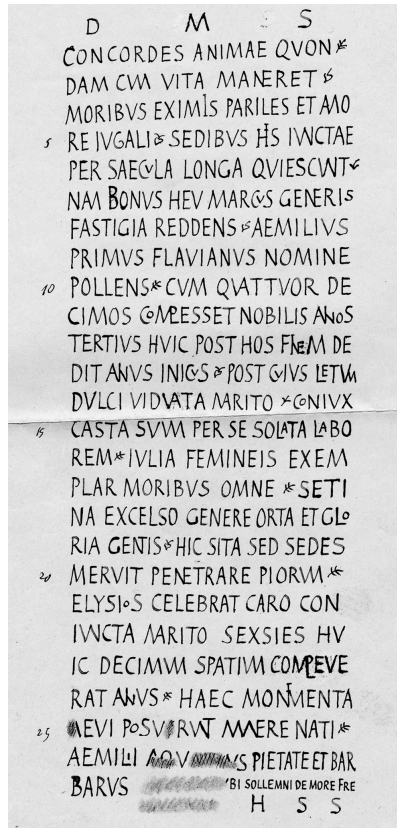 D M S
CONCORDES ANIMAE QVON
DAM CVM VITA MANERET
MORIBVS EXIMIS PARILES ET AMO
5 RE IVGALI SEDIBVS HIS IVNCTAE
PER SAECVLA LONGA QVIESCVNT
NAM BONVS HEV MARCVS GENERIS
FASTIGIA REDDENS AEMILIVS
PRIMVS FLAVIANVS NOMINE
10 POLLENS CVM QVATTVOR DE
CIMOS COMPLESSET NOBILIS ANNOS
TERTIVS HVIC POST HOS FINEM DE
DIT ANNVS INIQVS POST CVIVS LETVM
DVLCI VIDVATA MARITO CONIVX
15 CASTA SVVM PER SE SOLATA LABO
REM IVLIA FEMINEIS EXEM
PLAR MORIBVS OMNE SETI
NA EXCELSO GENERE ORTA ET GLO
RIA GENTIS HIC SITA SED SEDES
20 MERVIT PENETRARE PIORVM
ELYSIOS CELEBRAT CARO CON
IVNCTA MARITO SEXSIES HV
IC DECIMVM SPATIVM COMPLEVE
RAT ANNVS HAEC MONIMENTA
25 AEVI POSVERVNT MAERE NATI
AEMILI PIETATE ET BAR
BARVS BI SOLLEMNI DE MORE FRE
H S S